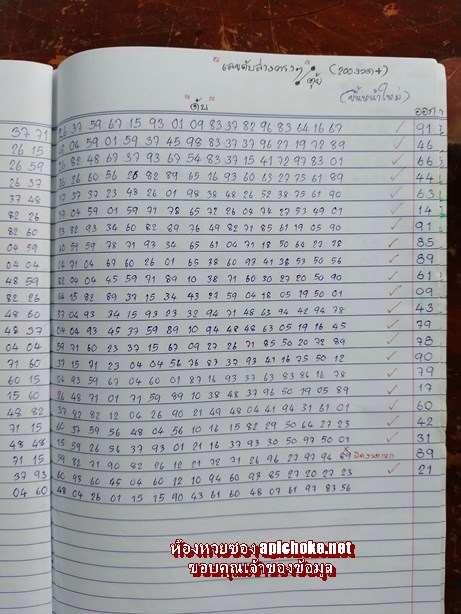 "เลขดับล่างตรงๆ" (200งวด+)
"ดับ"
(ขึ้นหน้าใหม่)
ออก
37 71
26 37 59 67 15 93 01 09 83 37 82 96 83 64 16 67 91
26 15
04 59 01 59 37 45 98 83 37 37 96 27 19 72 89 46
26 59
26 82 48 67 37 93 67 54 83 37 15 41 72 97 83 01 66
26 37
26 60 56 26 82 89 65 16 93 60 63 27 75 61 89 44
37 48
37 37 23 48 26 01 98 38 48 26 52 38 75 61 90 63
82 26
37 04 59 01 59 71 78 65 72 26 04 74 27 53 49 01 14
82 60
82 93 34 60 82 89 76 49 82 71 85 61 19 05 90 91
04 59
59 59 78 71 93 34 65 61 04 71 18 50 64 27 78 85
04 04
04 71 04 67 60 26 01 65 38 60 97 41 38 53 50 56 89
48 59
82 04 04 45 59 71 89 10 38 71 60 30 27 20 50 90 61
82 26
04 15 82 89 37 15 34 43 27 59 04 18 05 19 50 01 09
48 60
37 04 93 34 15 93 23 32 94 71 48 63 94 42 94 78 43
48 37
04 04 93 45 37 59 89 10 94 48 48 63 05 19 16 45 79
04 04
59 71 60 23 37 15 67 09 27 26 71 85 50 20 72 89 78
71 60
37 15 71 23 04 04 56 76 83 37 93 41 16 75 50 12 90
60 15
04 93 59 67 04 60 01 87 16 93 37 63 83 84 16 78 79
15 60
26 48 71 01 71 59 89 10 38 48 37 96 50 19 05 89 17
48 82
37 82 82 12 04 26 90 21 49 48 04 41 94 31 61 01 60
71 15
60 37 59 56 48 04 56 10 16 15 82 29 50 64 27 23 42
48 48
15 59 26 56 37 93 01 21 16 37 93 30 50 97 50 01 31
71 15
59 82 71 90 82 26 12 21 72 71 26 96 27 97 94 89 89
37 93
60 93 60 45 04 60 12 10 94 60 93 85 27 20 27 23 21
04 60
48 04 26 01 15 15 90 43 61 60 48 07 61 97 83 56
ห้องหวยซอง aplchoke.net
ขอบคุณเจ้าของข้อมูล